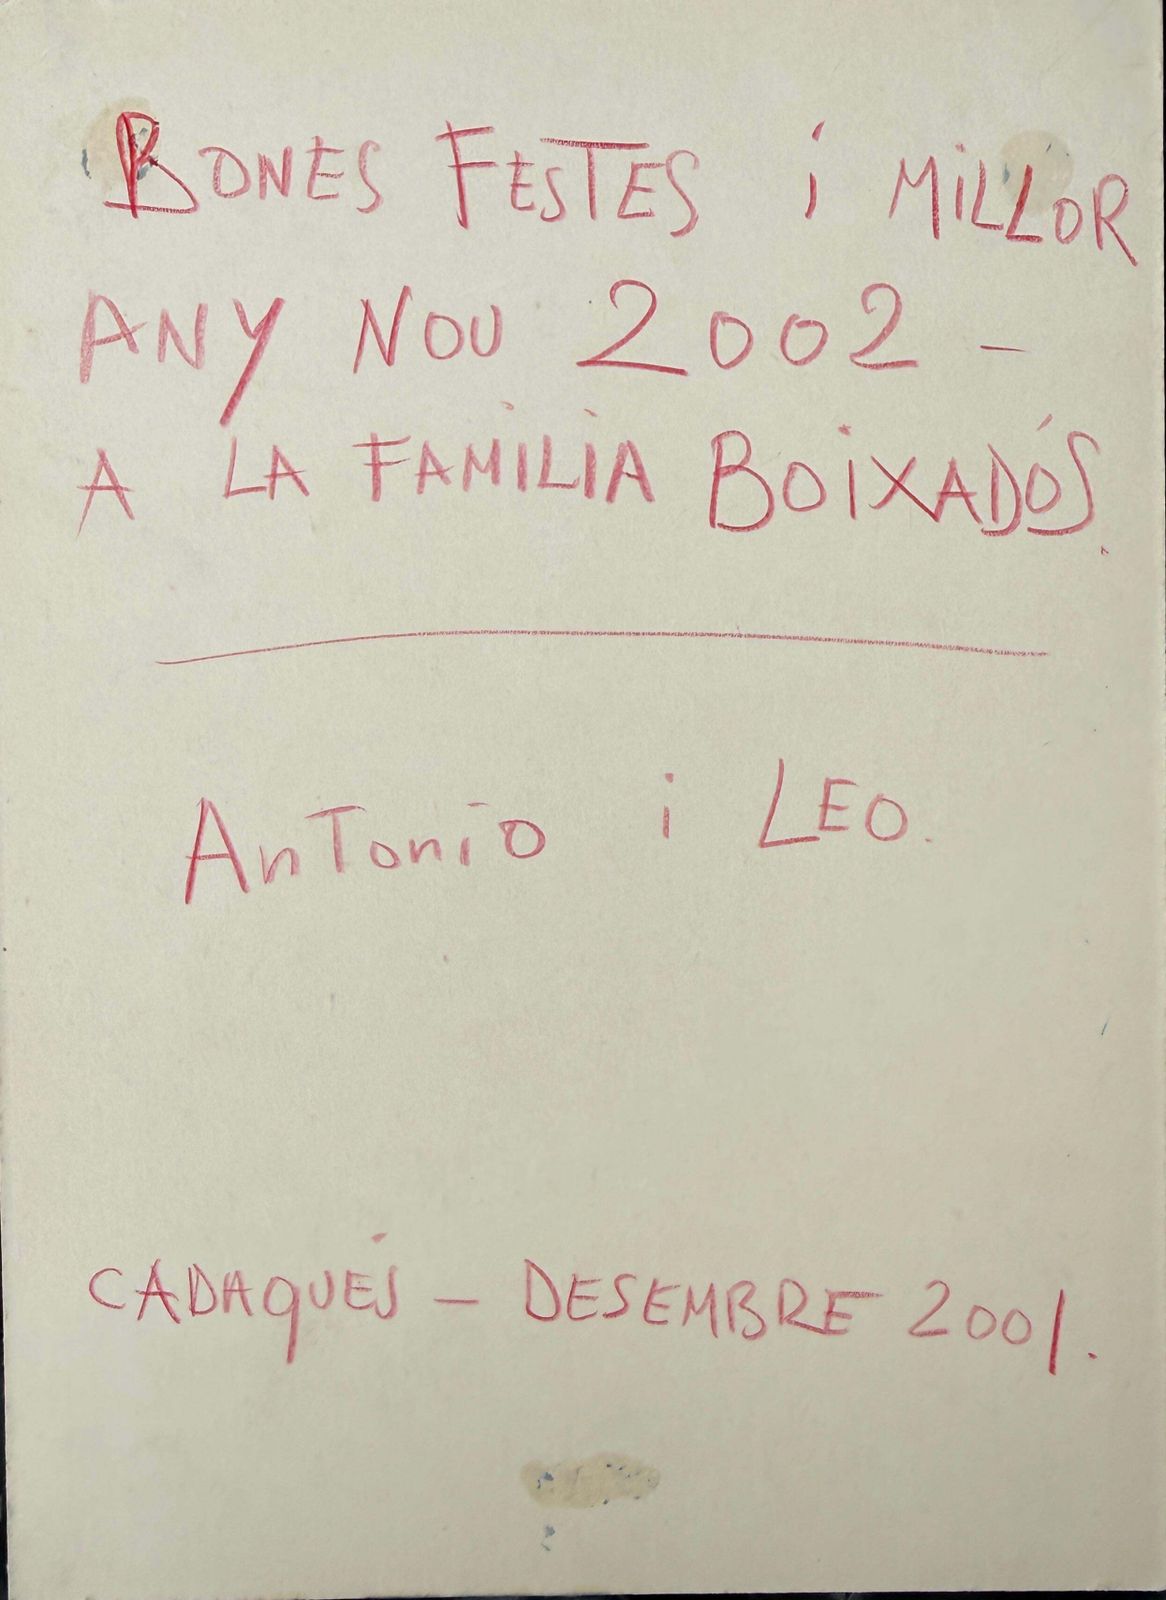 BONES FESTES i MiLLOR
ANY NOU 2002 -
A LA FAMILIA BOIXADÓS.
AnTonio i LEO.
CADAQUÉS - DESEMBRE 2001.